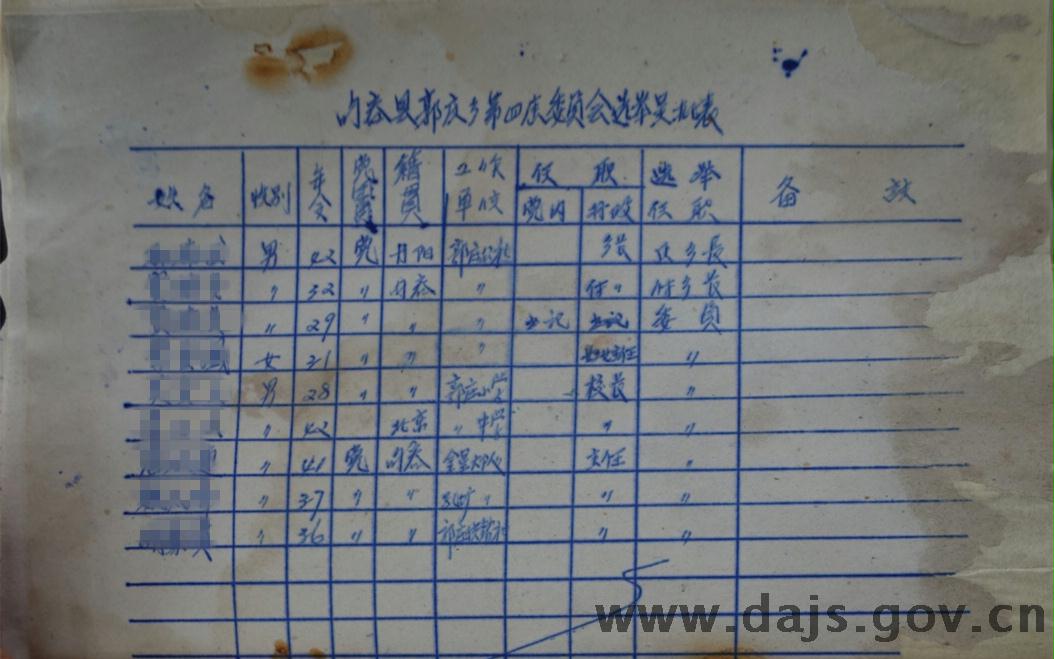 句容县郭庄乡第四届委员会选举员 表
姓名 性别 年令 党团员 籍贯 工作单位 任职 党内 行政 选举任职 备 放
男 42 党 丹阳 郭庄公社 乡长 乡长
〃 32 〃 句容 〃 付〃 付乡长
〃 29 〃 〃 〃 书记 书记 委员
女 31 〃 〃 〃 主任 〃
男 28 〃 〃 郭庄小学 校长 〃
〃 42 北京 〃中学 〃 〃
〃 41 党 句容 金星大队 主任 〃
〃 37 〃 〃 〃 〃 〃
〃 36 〃 〃 郭庄 〃 〃
www.dajs.gov.cn